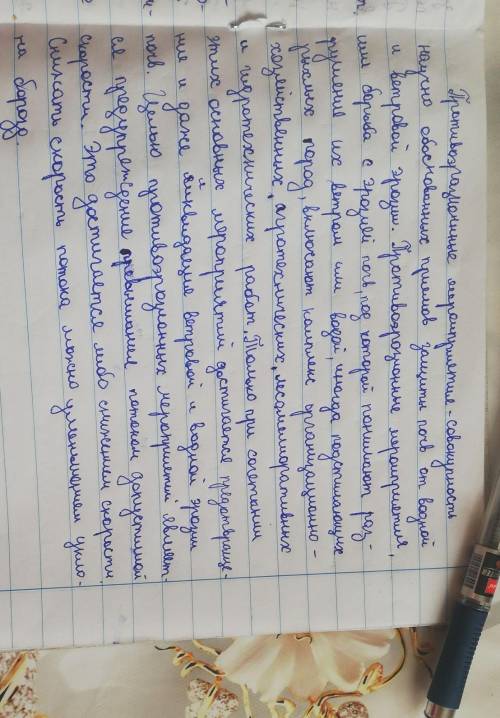 Противоэрозионные мероприятия - совокупность
научно обоснованных приемов защиты почв от водной
и ветровой эрозии. Противоэрозионные мероприятия,
или борьба с эрозией почв, под которой понимают раз-
рушение их ветром или водой, иногда подстилающих
рыхлых пород, включают комплекс организационно-
хозяйственных, агротехнических, лесомелиоративных
и гидротехнических работ. Только при сочетании
этих основных мероприятий достигается предотвраще-
ние и даже ликвидация ветровой и водной эрозии
почв. Целью противоэрозионных мероприятий являет-
ся предупреждение превышения потоком допустимой
скорости. Это достигается либо снижением скорости
Снижать скорость потока можно уменьшением укло-
на борозд.